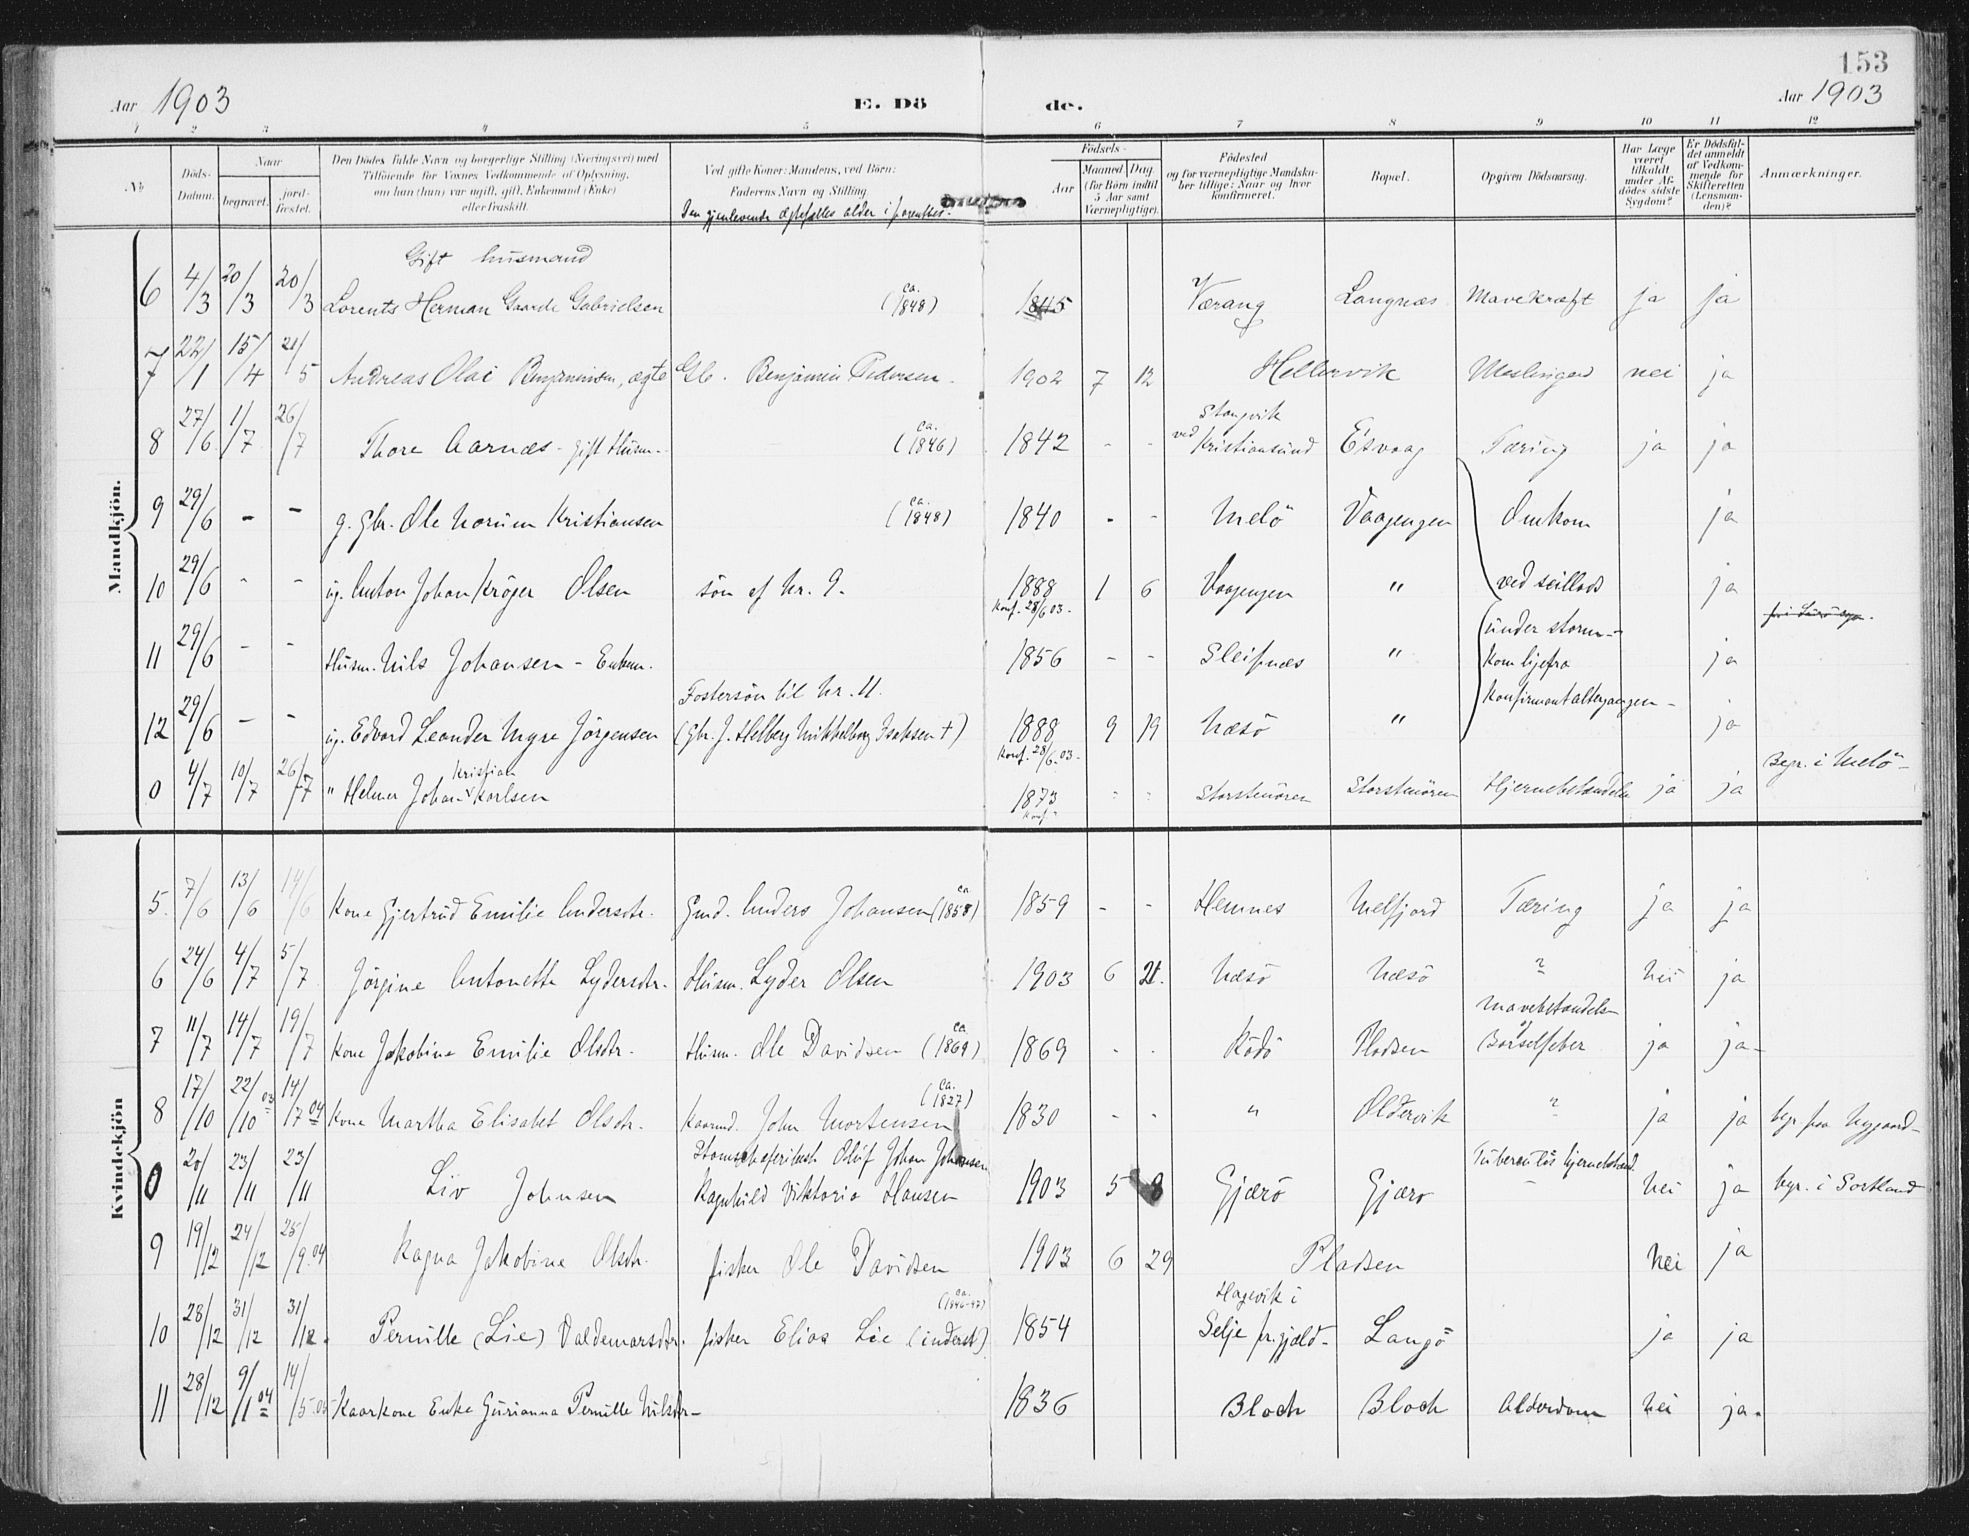 153
Aar 1903
E. Dö
de.
Aar 1903
1 2 3 4 5 6 7 8 9 10 11 12
No
Döds-Datum.
Naar
begravet.
jordfæstet.
Den Dödes fulde Navn og borgerlige Stilling (Næringsvei) med
Tilföiende for Voxnes Vedkommende af Oplysning,
om han (hun) var ugift, gift, Enkemand (Enke)
eller fraskilt.
Ved gifte Koner: Mandens, ved Börn:
Faderens Navn og Stilling
Den gjenlevende ægtefælles alder i parenthes.
Födsels-
Aar
Maaned Dag
(for Börn indtil
5 Aar samt
Værnepligtige).
Födested
og for værnepligtige Mandskaber tillige: Naar og hvor
konfirmeret.
Bopæl.
Opgiven Dödsaarsag.
Har Læge
været
tilkaldt
under Afdödes sidste
Sygdom?
Er Dödsfaldet anmeldt
af Vedkommende for
Skifteretten
(Lensmanden)?
Anmærkninger.
Mandkjön.
Gift husmand
6 4/3 20/3 20/3 Lorents Herman Gaarde Gabrielsen (ca. 1848) 1845 Værang Langnæs Mavekræft ja ja
7 22/1 15/4 21/5 Andreas Olai Benjaminsen, ægte Gb. Benjamin Pedersen. 1902 7 12 Hellervik Meslinger nei ja
8 27/6 1/7 26/7 Thore Aarnæs - gift Husm. (ca. 1846) 1842 - - Stangvik ved Kristiansund Esvaag Tæring ja ja
9 29/6 - - g. Gbr. Ole Norum Kristiansen (ca. 1848) 1840 - - Melö Vaagengen Omkom ja
10 29/6 - - ug. Anton Johan Kröger Olsen sön af Nr. 9. 1888 1 6 Vaagengen " ved seillads ja
Konf. 28/6 03.
11 29/6 - - Husm. Nils Johansen - Enkem. 1856 - - Sleipnæs " under storm - ja
kom hjefra
Fostersön til Nr. 11. konfirmantaltergangen -
12 29/6 - - ug. Edvard Leander Myre Jörgensen (Gbr. J. Helberg Mikkelborg Isaksen +) 1888 9 19 Næsö " ja
Konf. 28/6 03.
0 4/7 10/7 26/7 " Helmer Johan Kristian Karlsen 1873 Storstenören Storstenören Hjernebetændelse ja ja Begr. i Melö -
Konf.
Kvindekjön
5. 7/6 13/6 14/6 Kone Gjertrud Emilie Andersdtr. Gmd. Anders Johansen (ca. 1858) 1859 - - Hemnes Melfjord Tæring ja ja
6 24/6 4/7 5/7 Jörgine Antonette Lydersdtr. Husm. Lyder Olsen 1903 6 21. Næsö Næsö ? nei ja
7 11/7 14/7 19/7 Kone Jakobine Emilie Olsdtr. Husm. Ole Davidsen (ca. 1869) 1869 - - Rödö Pladsen Mavebetændels- Barselfeber ja ja -
8 17/10 22/10 03 14/7 04 Kone Martha Elisabet Olsdtr. Kaarmd. John Mortensen (ca. 1827) 1830 - - " Oldervik ? ja ja
0 20/11 23/11 23/11 Liv Johnsen Oluf Johan Johansen Ragnhild Viktoria Hansen 1903 5 8 Gjærö Gjærö Tuberculös hjernebetænd. nei ja bgr. i Sortland
9 19/12 24/12 25/9.04 Ragna Jakobine Olsdtr. fisker Ole Davidsen 1903 6 29 Pladsen nei ja
10 28/12 31/12 31/12. Pernille (Lie) Valdemarsdtr. fisker Elias Lie (inderst) (ca. 1846-47) 1854 Hagevik i Selje pr.gjæld - Langö ja ja
11 28/12 9/1 04 14/5 Kaarkone Enke Gurianna Pernille Nilsdtr - 1836 Bloch Bloch Alderdom nei ja.